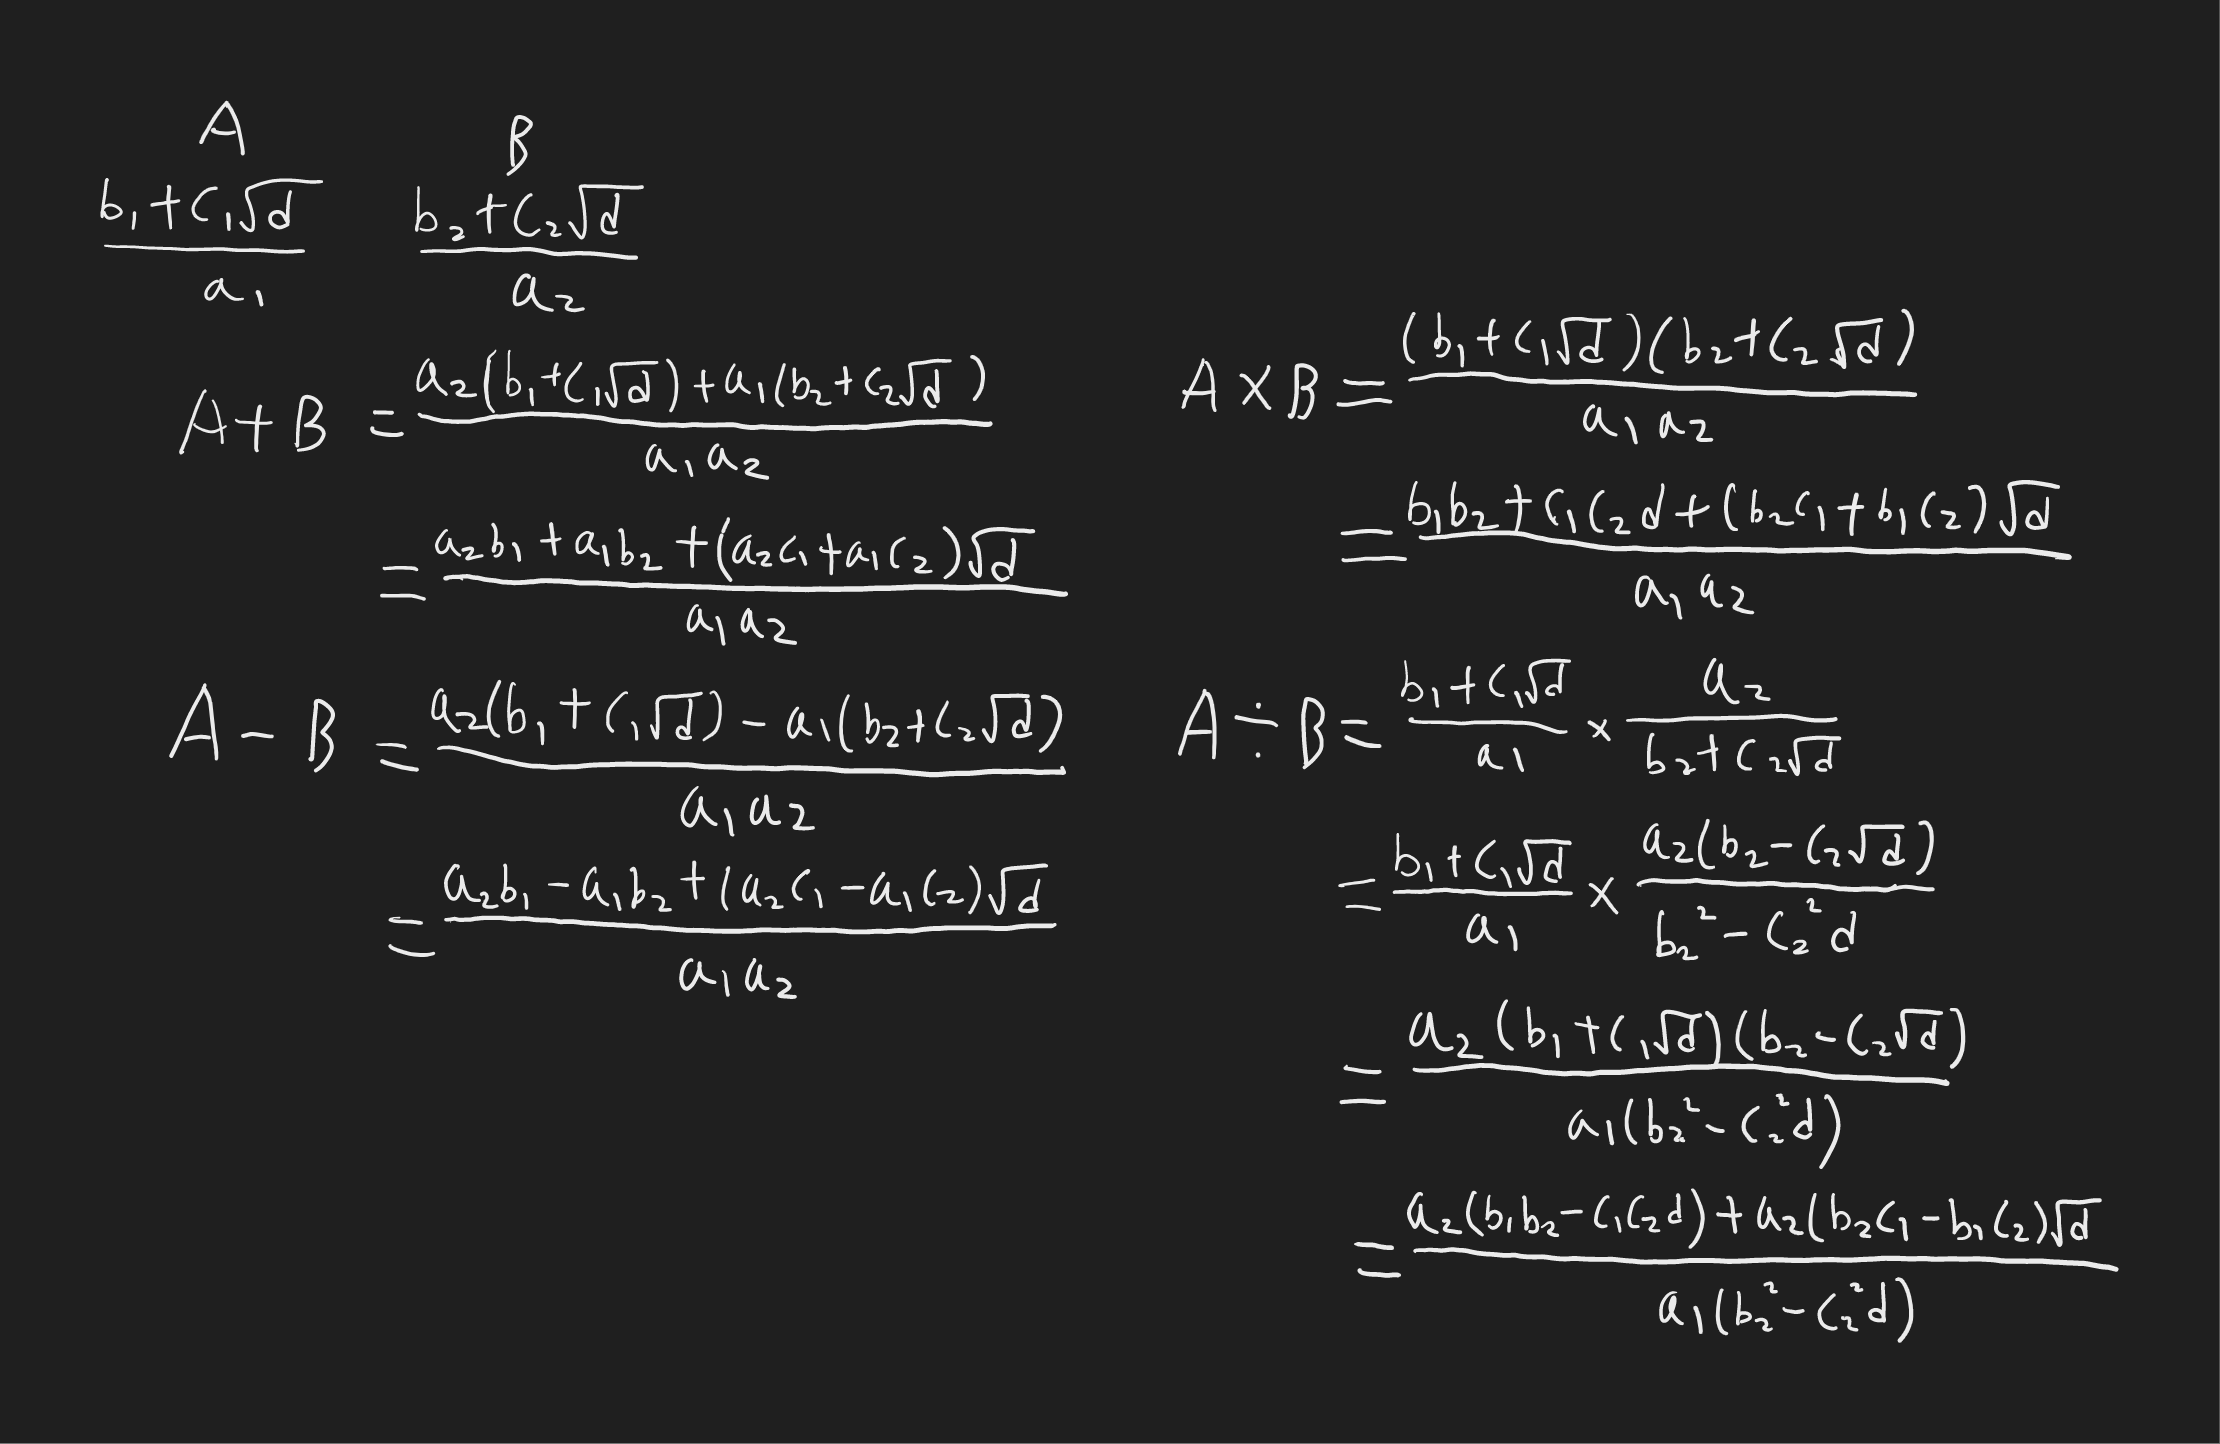 A B
(b₁+c₁√d)/a₁ (b₂+c₂√d)/a₂
A+B = (a₂(b₁+c₁√d)+a₁(b₂+c₂√d))/(a₁a₂)
= (a₂b₁+a₁b₂+(a₂c₁+a₁c₂)√d)/(a₁a₂)
A-B = (a₂(b₁+c₁√d)-a₁(b₂+c₂√d))/(a₁a₂)
= (a₂b₁-a₁b₂+(a₂c₁-a₁c₂)√d)/(a₁a₂)
A×B = ((b₁+c₁√d)(b₂+c₂√d))/(a₁a₂)
= (b₁b₂+c₁c₂d+(b₂c₁+b₁c₂)√d)/(a₁a₂)
A÷B = (b₁+c₁√d)/a₁ × a₂/(b₂+c₂√d)
= (b₁+c₁√d)/a₁ × (a₂(b₂-c₂√d))/(b₂²-c₂²d)
= (a₂(b₁+c₁√d)(b₂-c₂√d))/(a₁(b₂²-c₂²d))
= (a₂(b₁b₂-c₁c₂d)+a₂(b₂c₁-b₁c₂)√d)/(a₁(b₂²-c₂²d))